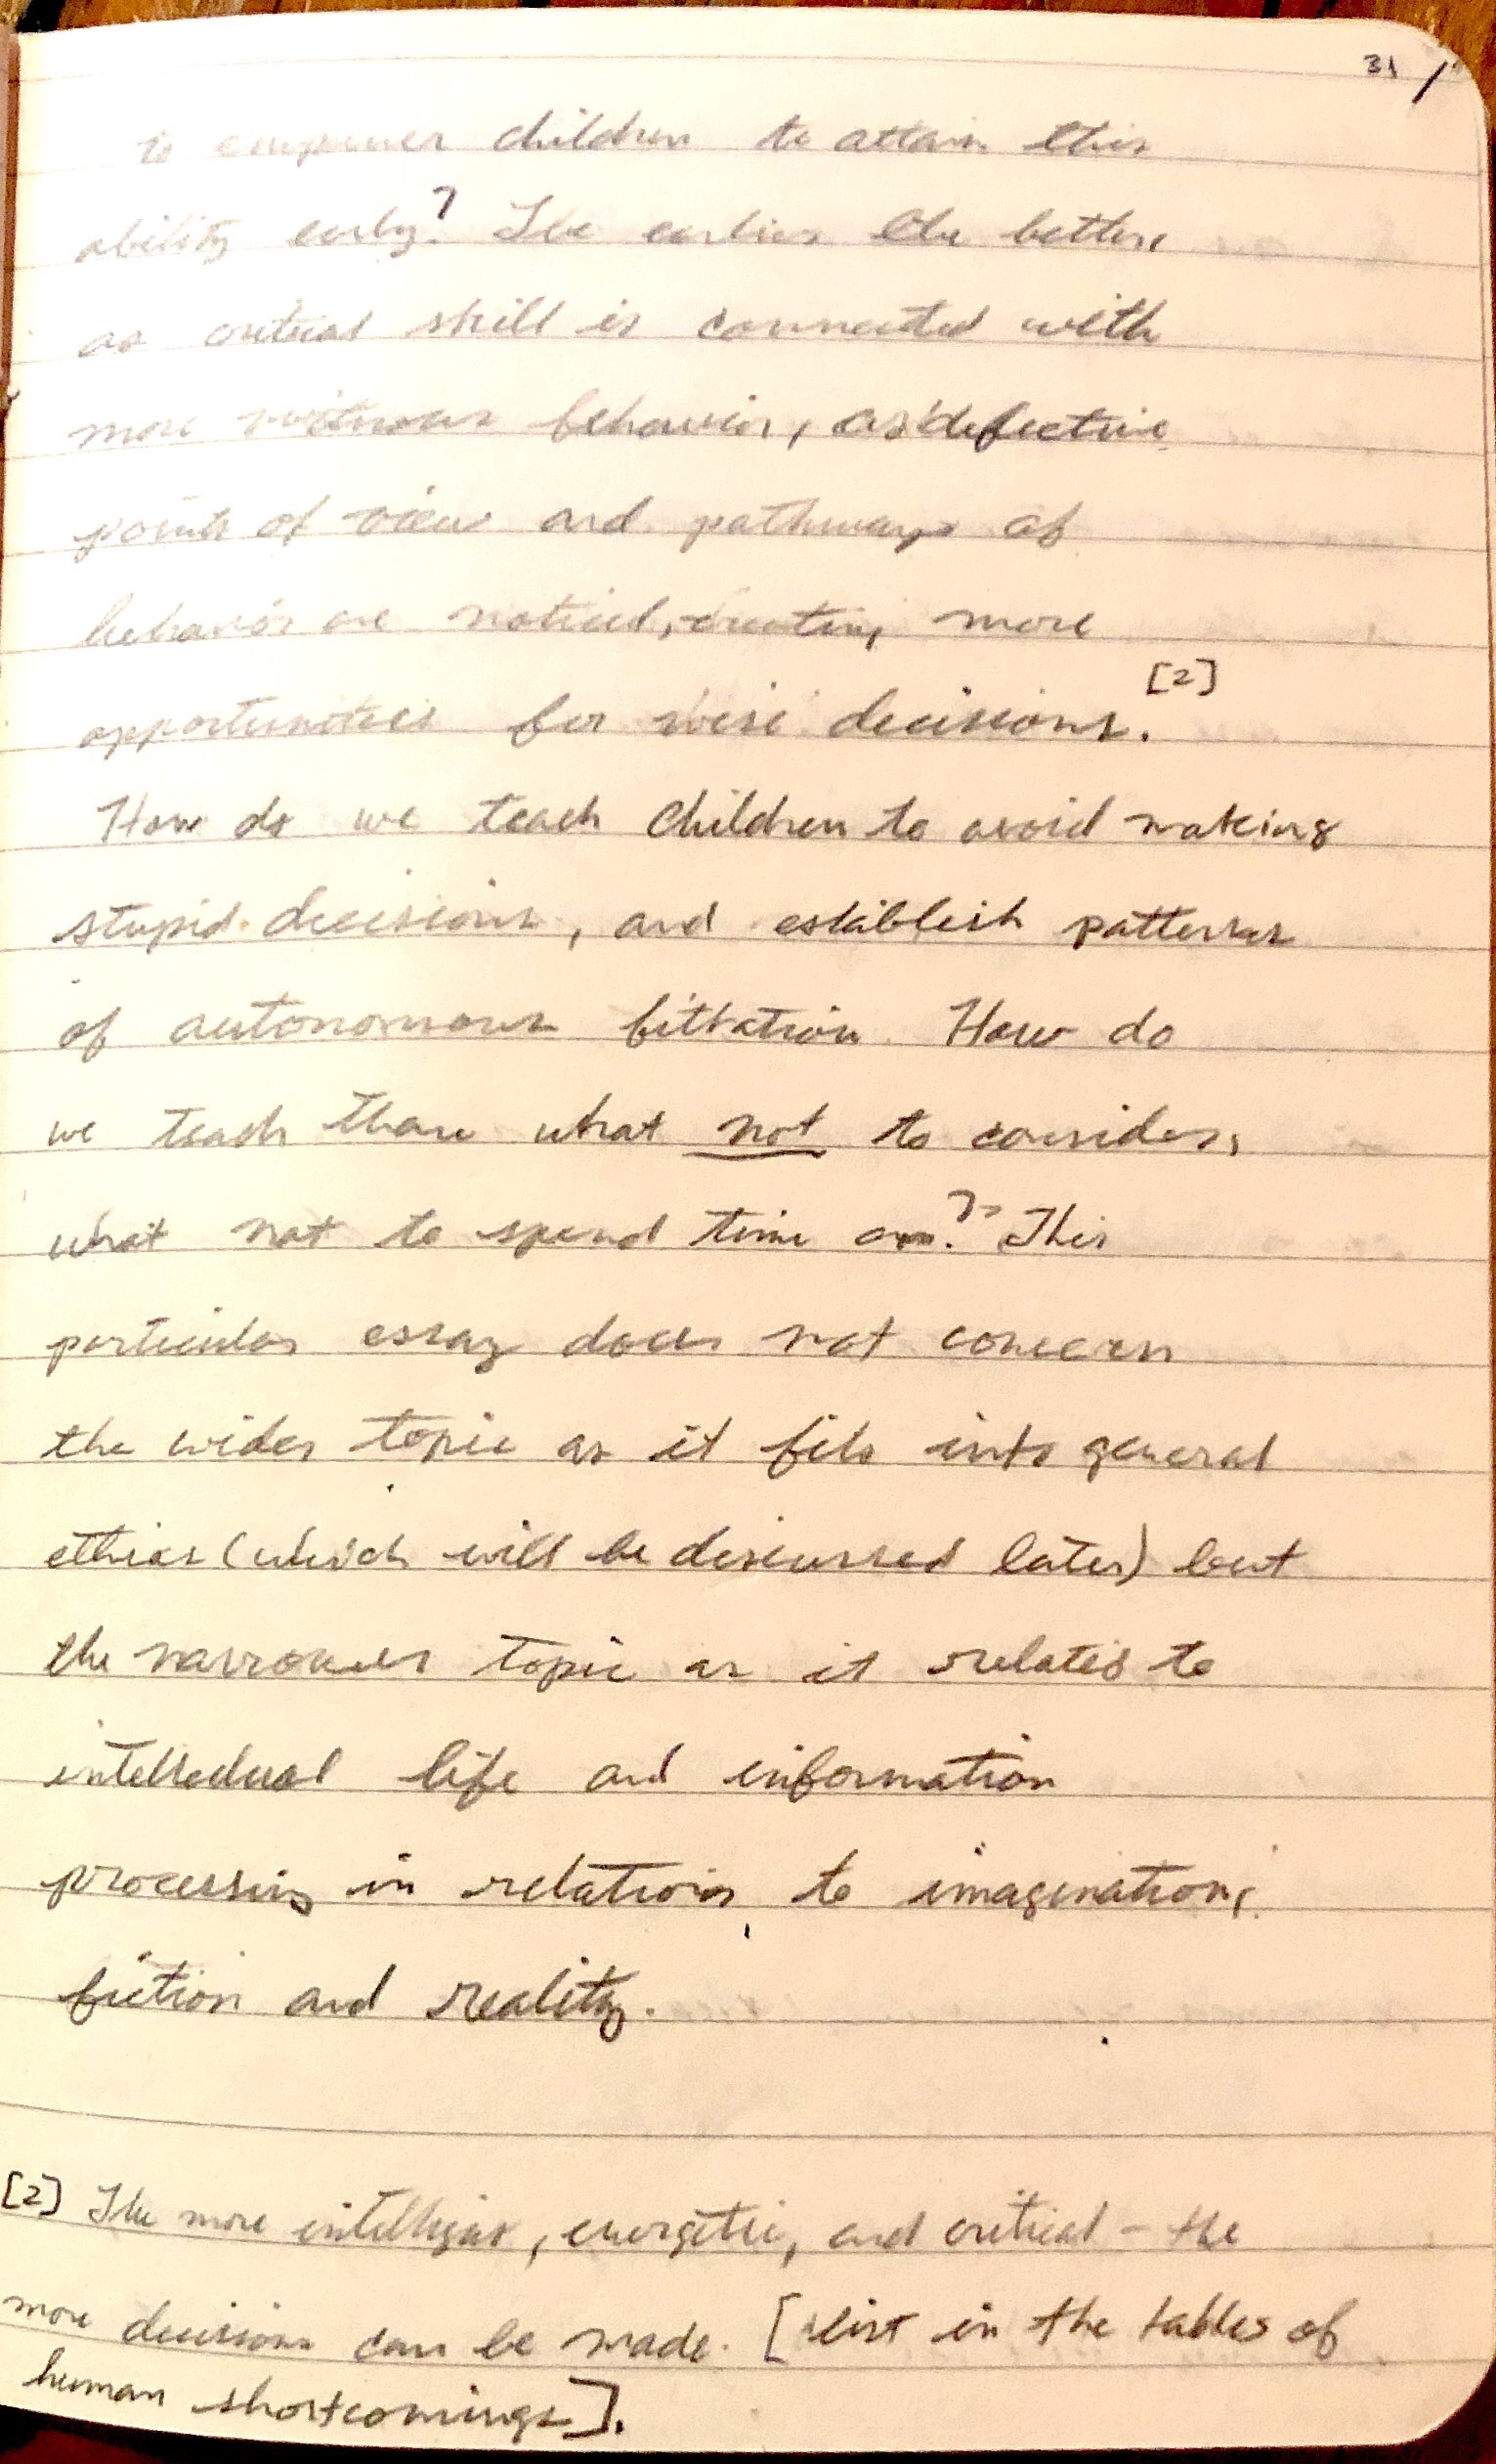 31
to empower children to attain this
ability early? The earlier the better
as critical skill is connected with
more virtuous behavior, as defective
points of view and pathways of
behavior are noticed, creating more
opportunities for wise decisions. [2]
How do we teach children to avoid making
stupid decisions, and establish patterns
of autonomous filtration. How do
we teach them what not to consider,
what not to spend time on? This
particular essay does not concern
the wider topic as it fits into general
ethics (which will be discussed later) but
the narrower topic as it relates to
intellectual life and information
processing in relation to imagination,
fiction and reality.
[2] The more intelligent, energetic, and critical - the
more decisions can be made. [list in the tables of
human shortcomings].